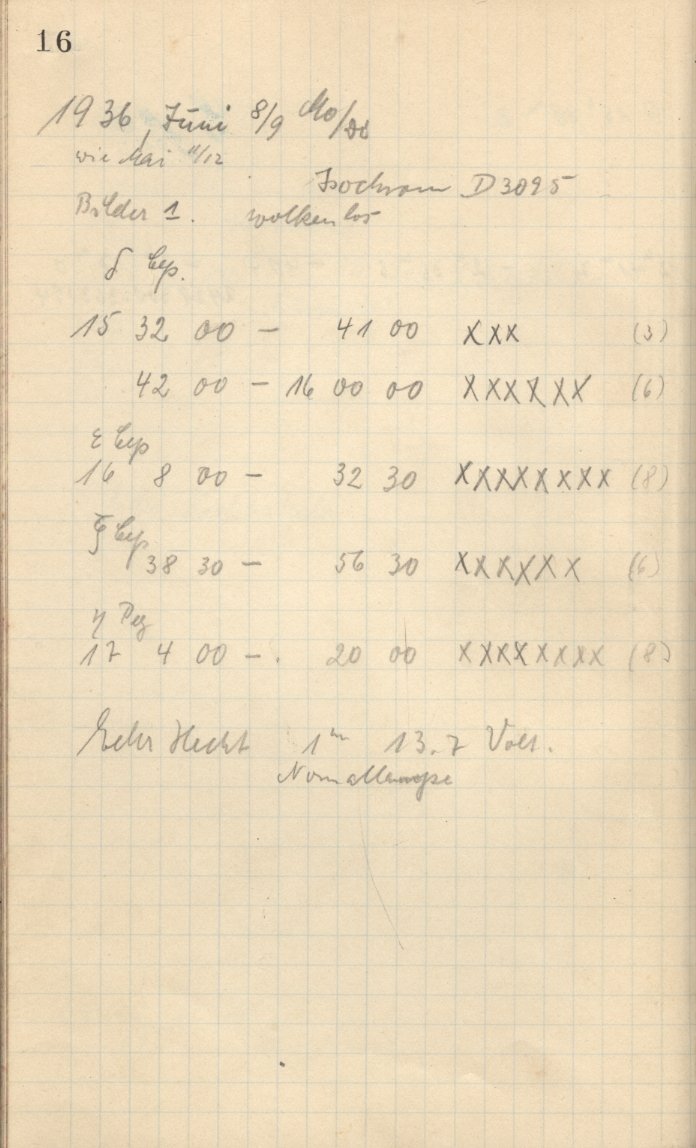 16
1936, Juni 8/9 Mo/Di
wie Mai 11/12
Isochrom D3095
Bilder 1. wolkenlos
δ Cep.
15 32 00 – 41 00 xxx (3)
42 00 – 16 00 00 xxxxxx (6)
ε Cep
16 8 00 – 32 30 xxxxxxxx (8)
ζ Cep
38 30 – 56 30 xxxxxx (6)
η Peg
17 4 00 – 20 00 xxxxxxxx (8)
1m 13.7 Volt.
Normallampe